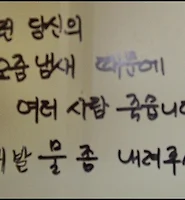 당신의
오줌 냄새 때문에
여러 사람 죽습니다
제발 물 좀 내려주